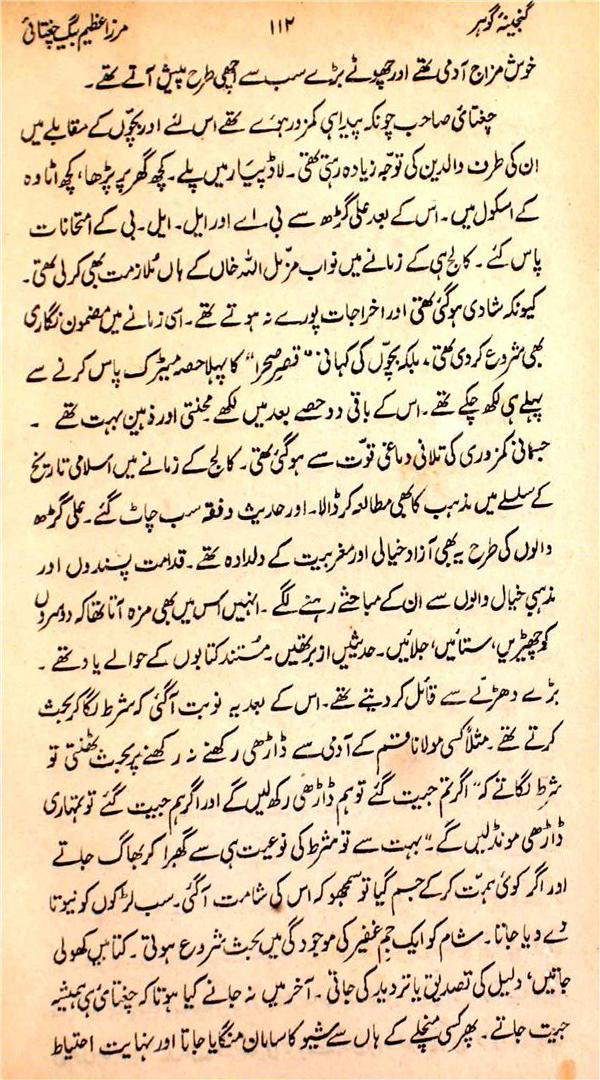 گنجینۂ گوہر ۱۱۲ مرزا عظیم بیگ چغتائی
خوش مزاج آدمی تھے اور چھوٹے بڑے سب سے اچھی طرح پیش آتے تھے۔
چغتائی صاحب چونکہ پیدا ہی کمزور ہوئے تھے اس لئے اور بچّوں کے مقابلے میں
ان کی طرف والدین کی توجّہ زیادہ رہتی تھی۔ لاڈ پیار میں پلے۔ کچھ گھر پر پڑھا، کچھ اٹاوہ
کے اسکول میں۔ اس کے بعد علی گڑھ سے بی۔اے اور ایل۔ ایل۔ بی کے امتحانات
پاس کئے۔ کالج ہی کے زمانے میں نواب مزّمل اللہ خاں کے ہاں مُلازمت بھی کرلی تھی۔
کیونکہ شادی ہوگئی تھی اور اخراجات پورے نہ ہوتے تھے۔ اسی زمانے میں مضمون نگاری
بھی شروع کردی تھی، بلکہ بچّوں کی کہانی "قصرِ صحرا" کا پہلا حصہ میٹرک پاس کرنے سے
پہلے ہی لکھ چکے تھے۔ اس کے باقی دو حصے بعد میں لکھے محنتی اور ذہین بہت تھے ۔
جسمانی کمزوری کی تلافی دماغی قوّت سے ہوگئی تھی۔ کالج کے زمانے میں اسلامی تاریخ
کے سلسلے میں مذہب کا بھی مطالعہ کر ڈالا۔ اور حدیث و فقہ سب چاٹ گئے۔ علی گڑھ
والوں کی طرح یہ بھی آزاد خیالی اور مغربیت کے دلدادہ تھے۔ قدامت پسندوں اور
مذہبی خیال والوں سے ان کے مباحثے رہنے لگے۔ انہیں اس میں بھی مزہ آتا تھا کہ دوسروں
کو چھیڑیں، ستائیں، جلائیں۔ حدیثیں ازبر تھیں۔ مُستند کتابوں کے حوالے یاد تھے ۔
بڑے دھڑلّے سے قائل کر دیتے تھے۔ اس کے بعد یہ نوبت آگئی کہ شرط لگا کر بحث
کرتے تھے۔ مثلاً کسی مولانا قسم کے آدمی سے ڈاڑھی رکھنے نہ رکھنے پر بحث ٹھنتی تو
شرط لگاتے کہ "اگر تم جیت گئے تو ہم ڈاڑھی رکھ لیں گے اور اگر ہم جیت گئے تو تمہاری
ڈاڑھی مونڈ لیں گے۔" بہت سے تو شرط کی نوعیت ہی سے گھبرا کر بھاگ جاتے
اور اگر کوئی ہمّت کرکے جم گیا تو سمجھو کہ اس کی شامت آگئی۔ سب لڑکوں کو نیوتا
دے دیا جاتا۔ شام کو ایک جمِ غفیر کی موجودگی میں بحث شروع ہوتی۔ کتابیں کھولی
جاتیں، دلیل کی تصدیق یا تردید کی جاتی۔ آخر میں نہ جانے کیا ہوتا کہ چغتائی ہی ہمیشہ
جیت جاتے۔ پھر کسی منچلے کے ہاں سے شیو کا سامان منگایا جاتا اور نہایت احتیاط